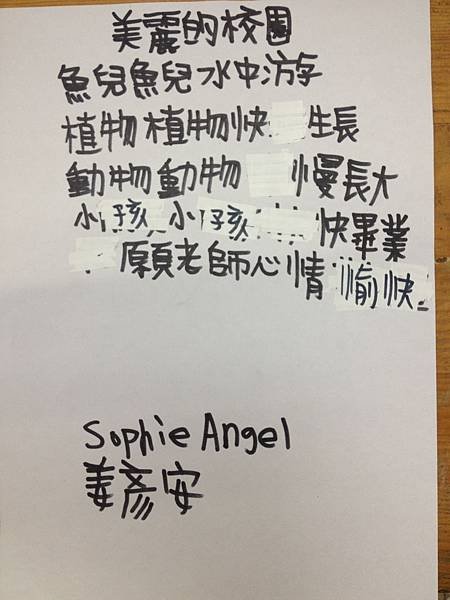 美麗的校園
魚兒魚兒水中游
植物植物快 生長
動物動物 慢長大
小孩小孩 快畢業
願老師心情愉快
Sophie Angel
姜彥安